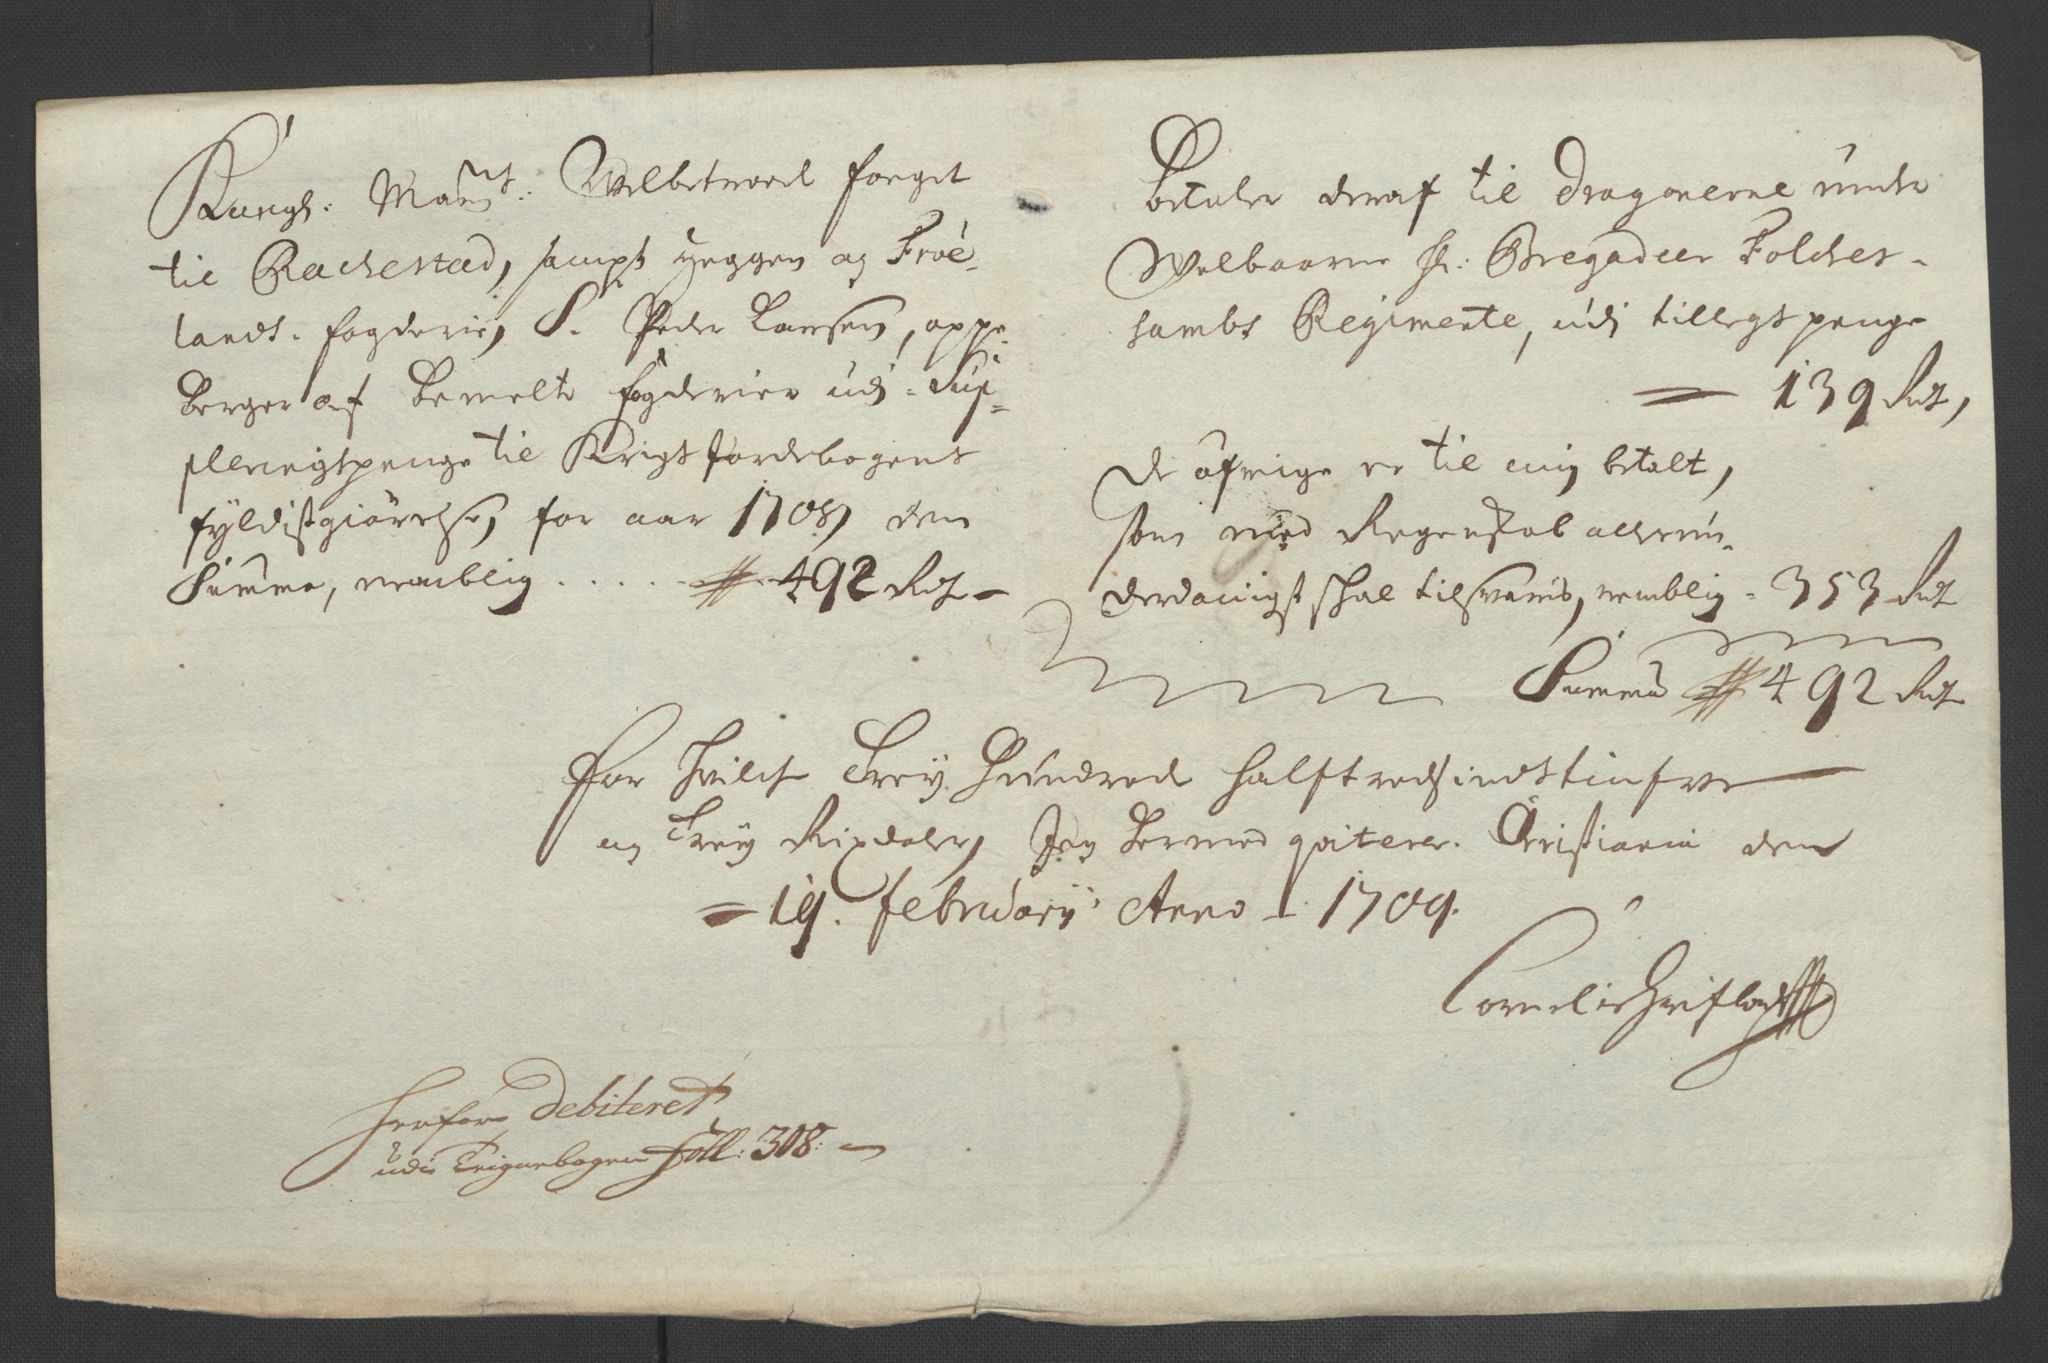 Kongl: Mayts: Welbetroed foaget
til Rachestad, sampt Heggen og Frøe-
lands fogderie, Sr. Peder Larsen, oppe-
berger af bemelte fogderier udj Sup-
plerringspenge til Krigs Jordebogens
fyldistgiørelse, for aar 1708, den
Summa, nemblig . . . . . 492 Rdr
Betaler deraf til Dragonerne under
Welbaarne Hr: Bregadeer Folcher-
sambs Regimente, udj tillegs penge
139 Rdr,
De øfrige er til mig betalt,
som med Regenskab allerun-
derdanigst schal tilsvaris, nemblig - 353 Rdr
Summa 492 Rdr
For hvilche Trey Hundred halftredsindstiufve
og Treij Rixdaler, Jeg hermed qviterer. Christiania den
19. februarij Anno 1709.
Herfore Debiteret
udi bogen Foll: 308: